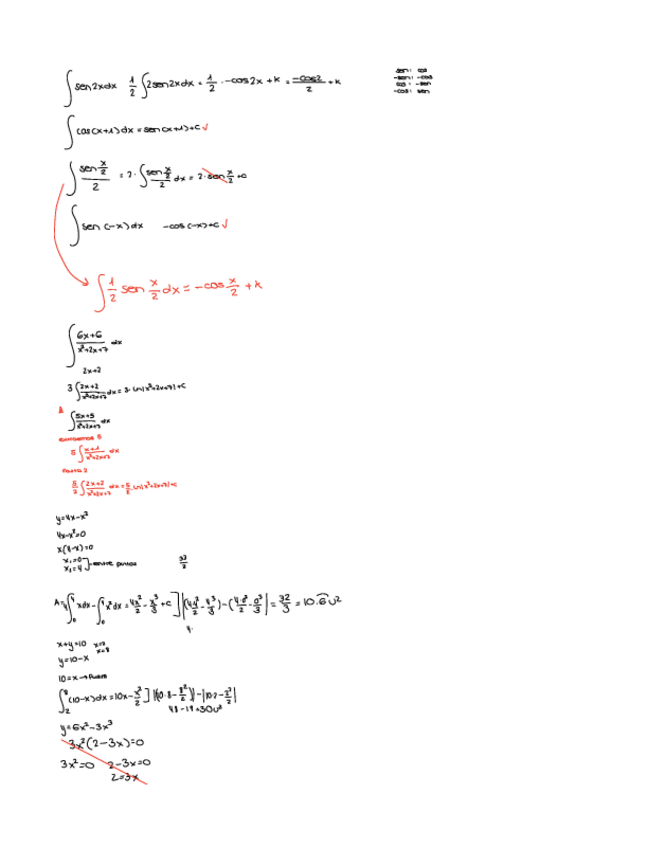 ∫ sen2xdx  1/2 ∫2sen2xdx = 1/2 · -cos2x + k = -cos2/2 + k
sen: cos
-sen: -cos
cos: -sen
-cos: sen
∫ cos(x+1)dx = sen(x+1)+c √
∫ sen x/2 / 2 = 2· ∫ sen x/2 / 2 dx = 2·sen x/2 + c
∫ sen(-x)dx  -cos(-x)+c √
∫ 1/2 sen x/2 dx = -cos x/2 + k
∫ 6x+6 / x²+2x+7 dx
2x+2
3 ∫ 2x+2 / x²+2x+7 dx = 3· ln|x²+2x+7|+c
∫ 5x+5 / x²+2x+7 dx
5 ∫ x+1 / x²+2x+7 dx
falta 2
5/2 ∫ 2x+2 / x²+2x+7 dx = 5/2 ln|x²+2x+7|+c
y=4x-x²
4x-x²=0
x(4-x)=0
x₁=0
x₂=4
entre puntos
32/2
A=4∫₀⁴ xdx - ∫₀⁴ x²dx = 4x²/2 - x³/3 + c ] |(4·4²/2 - 4³/3) - (4·0²/2 - 0³/3)| = 32/3 = 10.6 u²
4.
x+y=10
x=8
y=10-x
10=x → fuera
∫₂⁸ (10-x)dx = 10x - x²/2 ] |(10·8 - 8²/2)| - |10·2 - 2²/2|
48-18=30u²
y=6x²-3x³
3x²(2-3x)=0
3x²=0  2-3x=0
2=3x